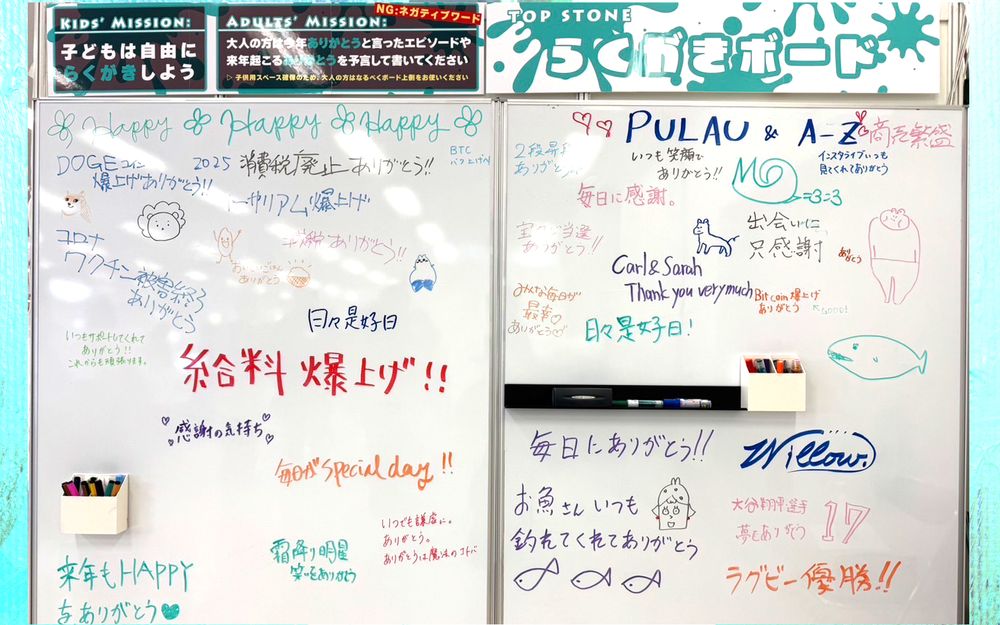 KIDS' MISSION:
子どもは自由に
らくがきしよう
ADULTS' MISSION:
NG:ネガティブワード
大人の方は今年ありがとうと言ったエピソードや
来年起こるありがとうを予言して書いてください
▷ 子供用スペース確保のため、大人の方はなるべくボード上側をお使いください
TOP STONE
らくがきボード
Happy Happy Happy
BTC
DOGEコイン
爆上げありがとう!!
2025 消費税廃止ありがとう!!
イーサリアム爆上げ
コロナ
ワクチン被害終了
ありがとう
税ありがとう!!
ありがとう
いつもサポートしてくれて
ありがとう!!
これからも頑張ります。
日々是好日
給料爆上げ!!
感謝の気持ち
毎日がspecial day!!
いつでも謙虚に。
ありがとう。
ありがとうは魔法のコトバ
霜降り明星
笑いをありがとう
来年もHAPPY
をありがとう
PULAU & A-Z
商売繁盛
2段昇段
ありがとう
いつも笑顔で
ありがとう!!
インスタライブいつも
見てくれてありがとう
=3=3
毎日に感謝。
宝くじ当選
ありがとう!!
出会いに
只感謝
ありがとう
Carl & Sarah
Thank you very much
Bitcoin爆上げ
ありがとう
GOOD!
みんな毎日が
最幸
ありがとう
日々是好日!
毎日にありがとう!!
Willow.
お魚さんいつも
釣れてくれてありがとう
大谷翔平選手
夢をありがとう
17
ラグビー優勝!!